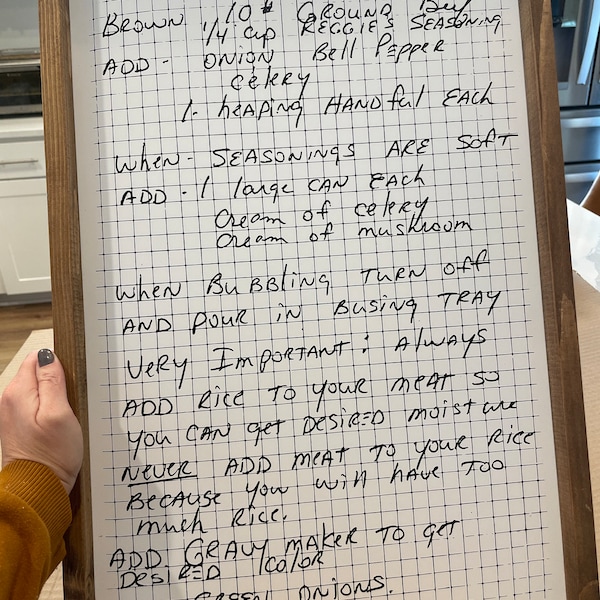 BROWN 10# GROUND Beef
1/4 cup REGGIE'S SEASONING
ADD - ONION Bell Pepper
Celery
1- heaping HANDful EACH
When - SEASONINGS ARE SOFT
ADD - 1 large CAN EACH
Cream of celery
Cream of mushroom
When BuBBling TURN off
AND pour in Busing TRAY
Very IMPORTANT: Always
ADD Rice To your meat so
you CAN get Desired moisture
NEVER ADD meat To your Rice
Because you will have Too
much Rice.
ADD GRAVY maker To get
Desired color
GREEN ONIONS.